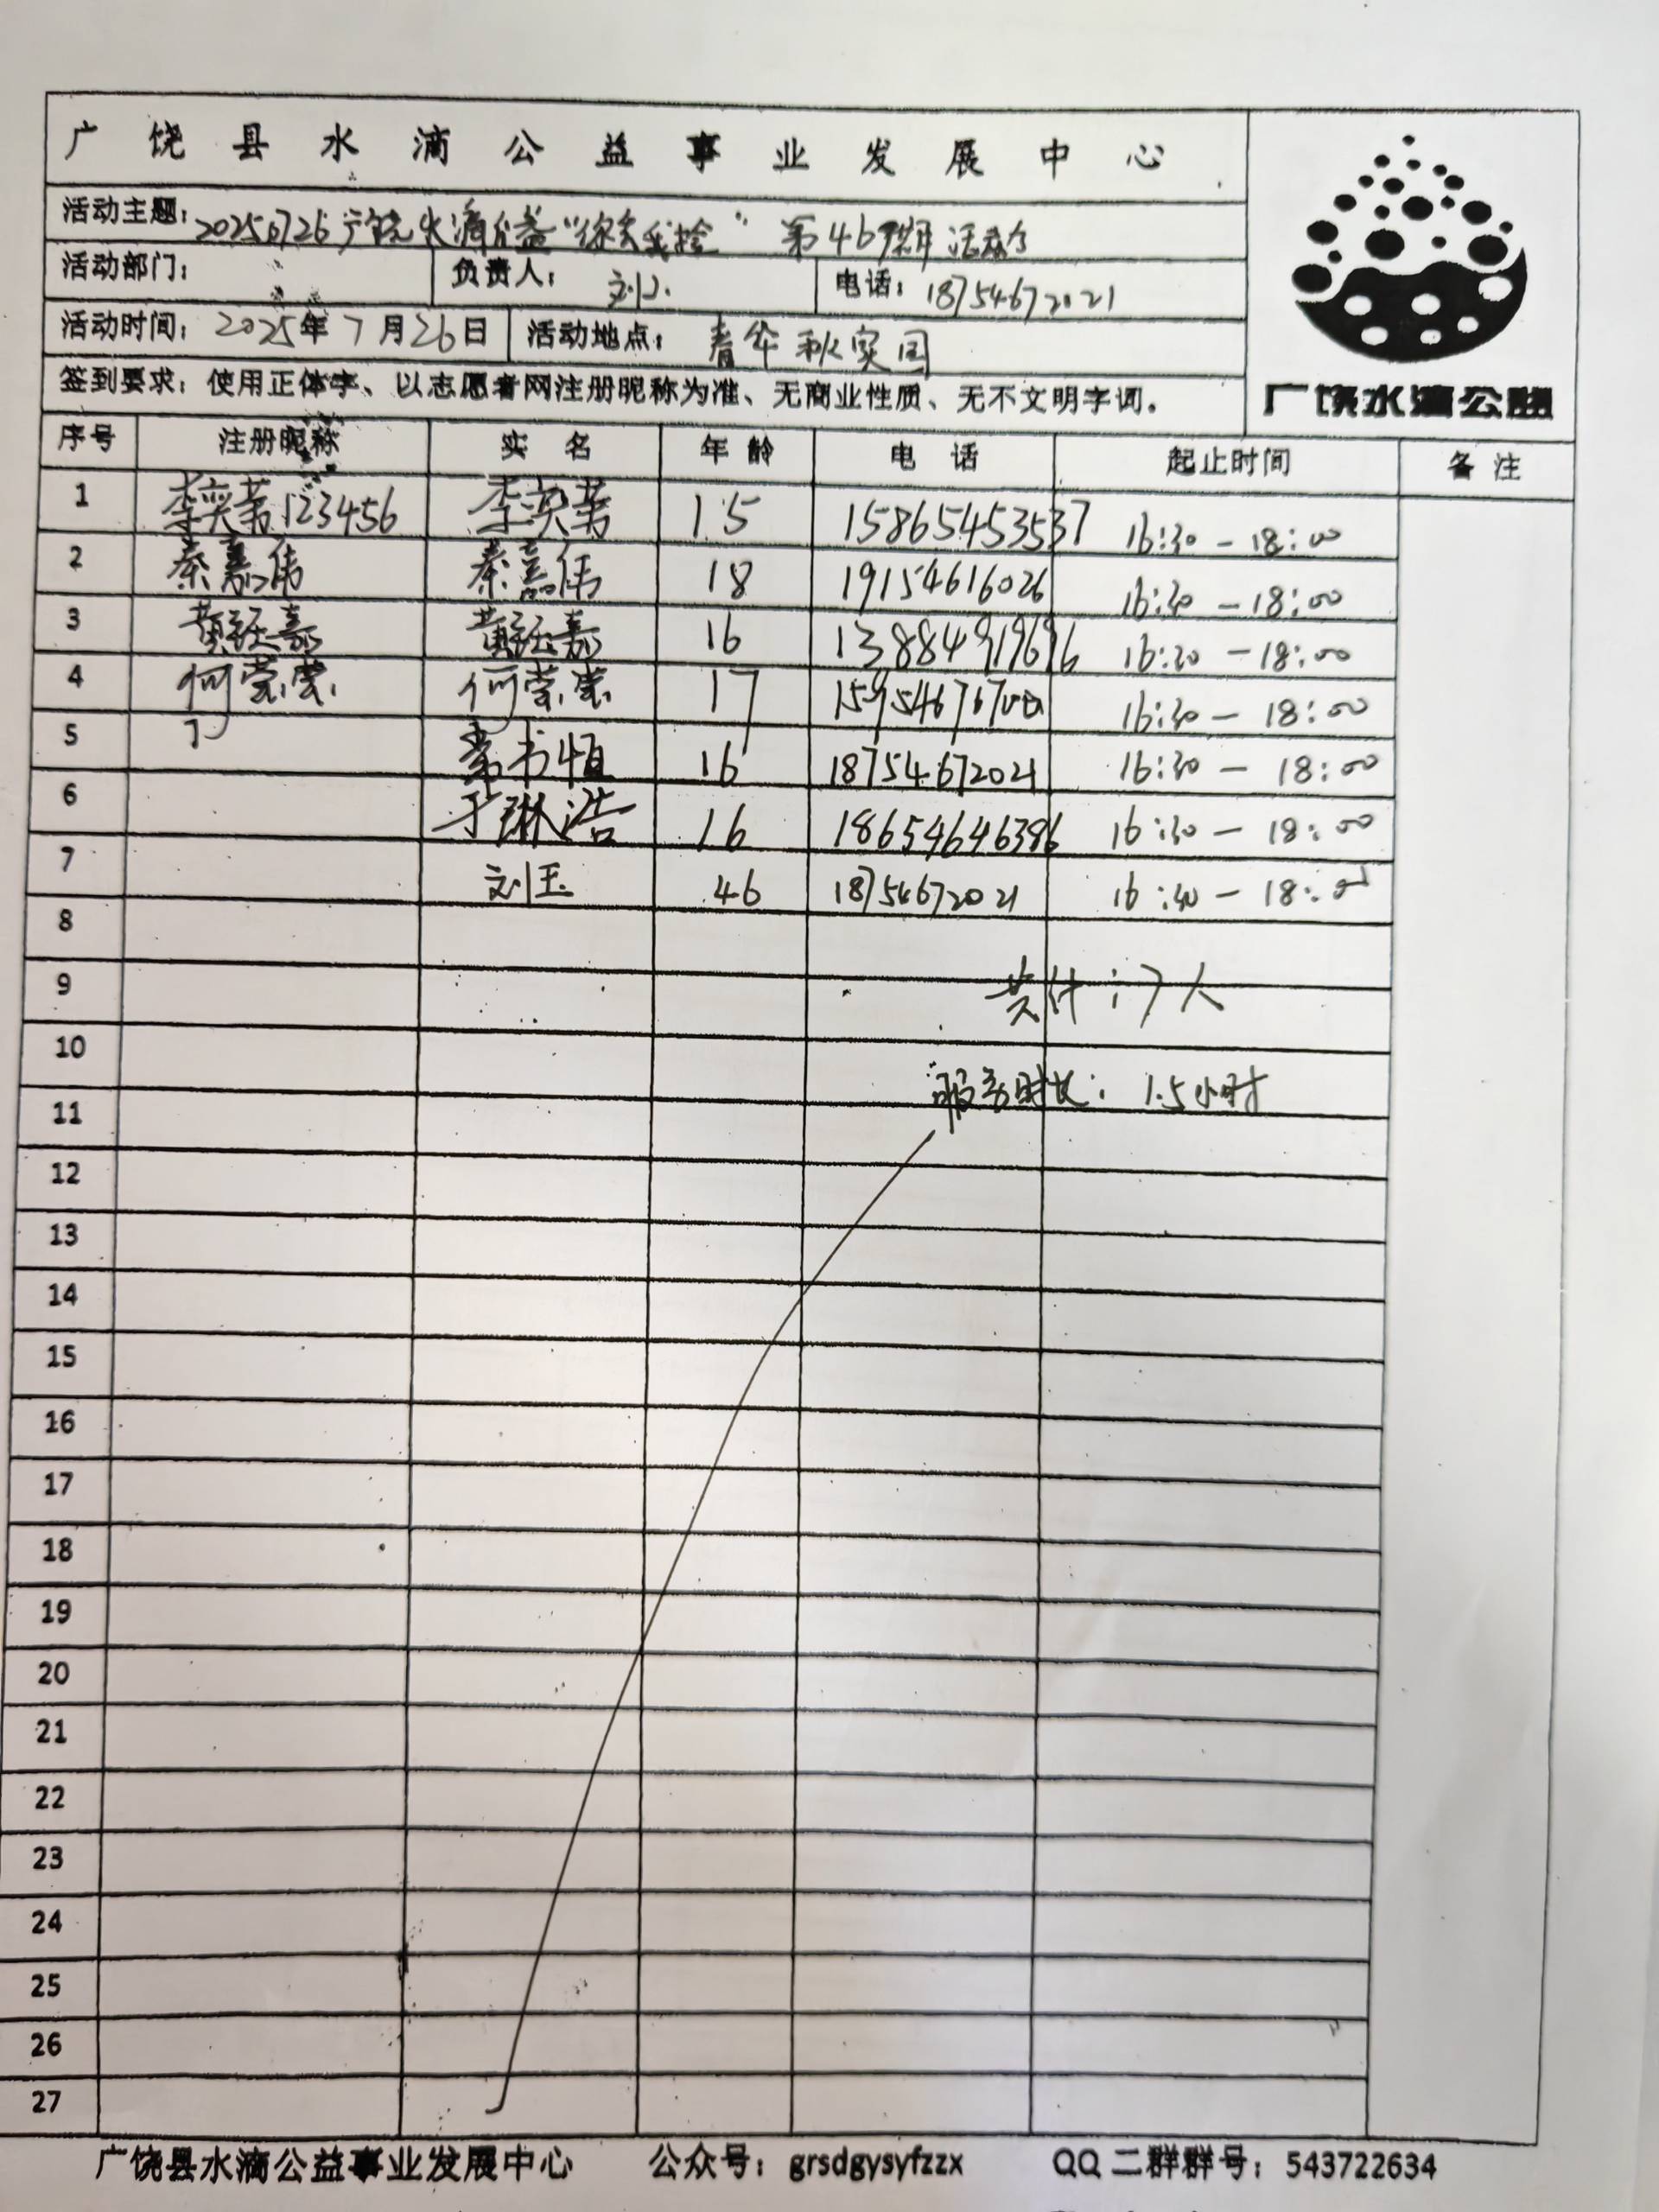 广饶县水滴公益事业发展中心
活动主题：20250726广饶水滴公益“你丢我捡”第469期活动
活动部门： 负责人：刘 电话：18754672021
活动时间：2025年7月26日 活动地点：春华秋实园
签到要求：使用正体字、以志愿者网注册昵称为准、无商业性质、无不文明字词。
广饶水滴公益
序号 注册昵称 实 名 年 龄 电 话 起止时间 备 注
1 李奕 123456 李奕 15 15865453537 16:30-18:00
2 秦嘉伟 秦嘉伟 18 19154616026 16:30-18:00
3 黄钰嘉 黄钰嘉 16 16:30-18:00
4 何蒙蒙 何蒙蒙 17 16:30-18:00
5 书恒 16 18754672021 16:30-18:00
6 于琳浩 16 18654646386 16:30-18:00
7 刘玉 46 18754672021 16:30-18:00
8
9 共计：7人
10 服务时长：1.5小时
11
12
13
14
15
16
17
18
19
20
21
22
23
24
25
26
27
广饶县水滴公益事业发展中心 公众号：grsdgysyfzzx QQ二群群号：543722634